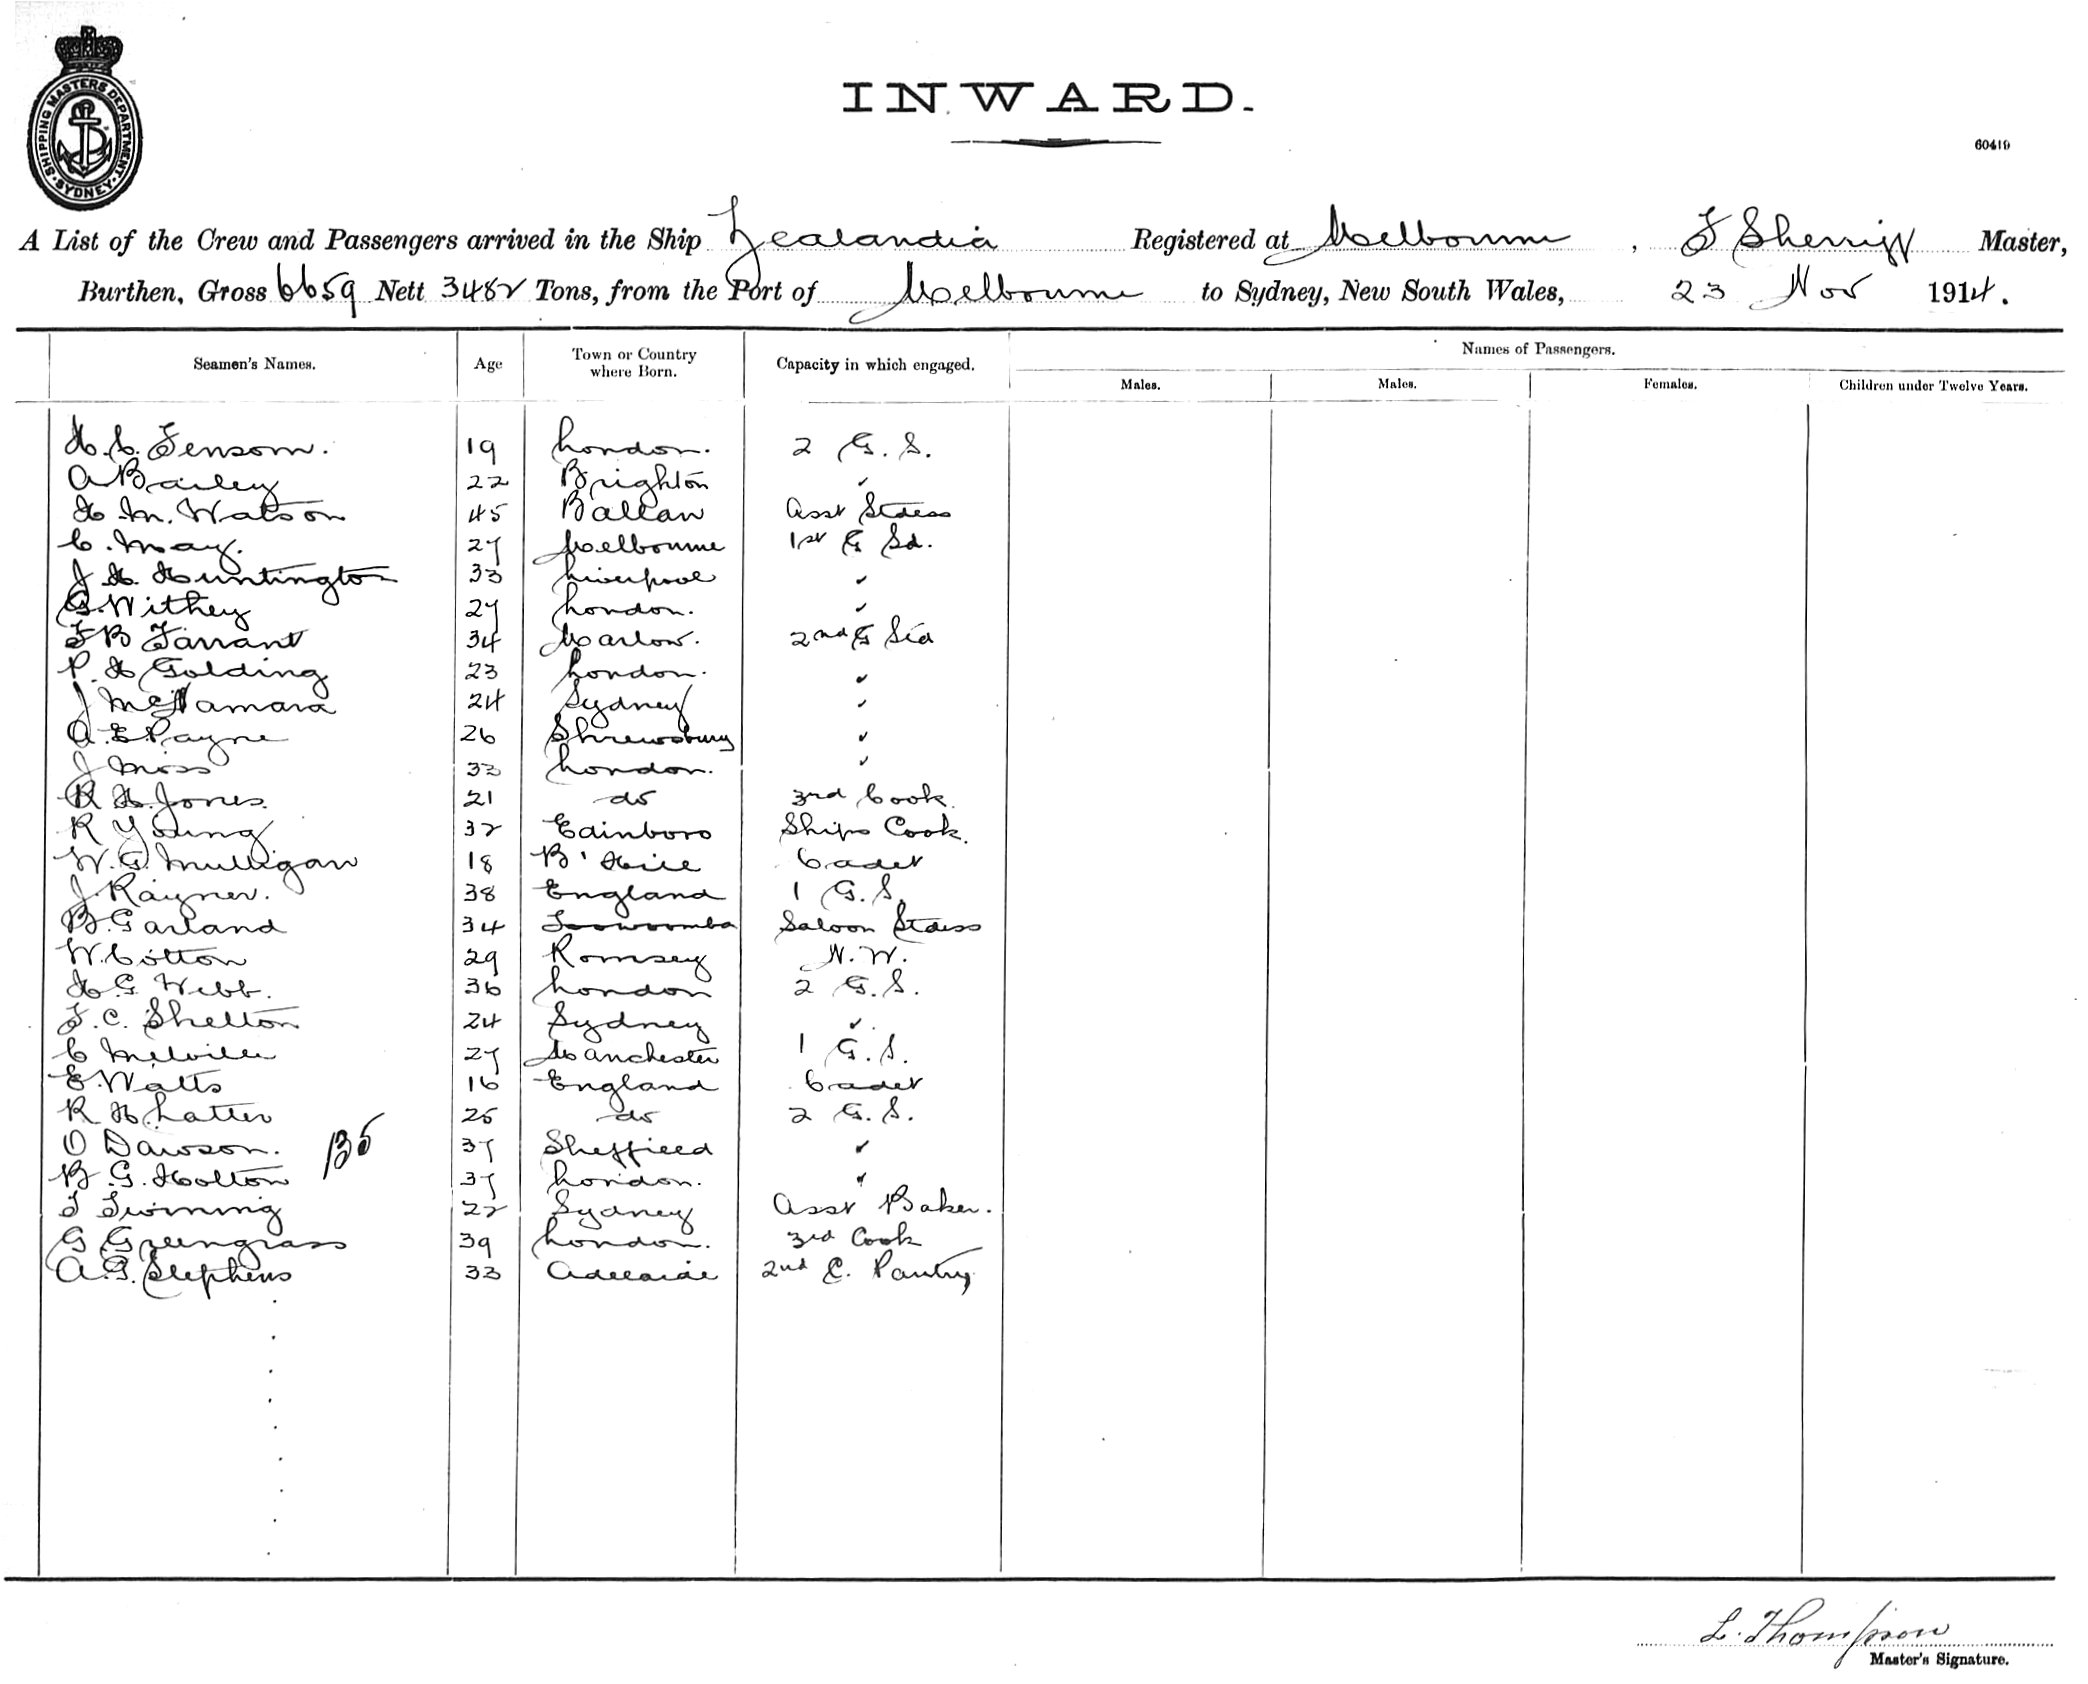 SHIPPING MASTERS DEPARTMENT SYDNEY
INWARD.
60419
A List of the Crew and Passengers arrived in the Ship Zealandia Registered at Melbourne, F Sherriff Master,
Burthen, Gross 6659 Nett 3482 Tons, from the Port of Melbourne to Sydney, New South Wales, 23 Nov 1914.
Seamen's Names. Age Town or Country where Born. Capacity in which engaged. Names of Passengers.
Males. Males. Females. Children under Twelve Years.
H. C. Fensom. 19 London. 2 G. S.
A Bailey 22 Brighton "
H. M. Watson 45 Ballan Asst Stdess
C. May. 27 Melbourne 1st G Sd.
J. H. Huntington 33 Liverpool "
G. Withey 27 London. "
F B Farrant 34 Marlow. 2nd G Sd
P. H Golding 23 London. "
J McNamara 24 Sydney "
A. E Payne 26 Shrewsbury "
J Moss 33 London. "
R H. Jones. 21 do 3rd Cook.
R Young 32 Edinboro Ships Cook.
W. G. Mulligan 18 B' Hill Cadet
J. Rayner. 38 England 1 G. S.
B. Garland 34 Toowoomba Saloon Stdess
W. Cotton 29 Romsey N. W.
H. G. Webb. 36 London 2 G. S.
F. C. Shelton 24 Sydney "
C Melville 27 Manchester 1 G. S.
E. Watts 16 England Cadet
R H Latter 25 do 2 G. S.
O Dawson. 135 37 Sheffield "
B. G. Holton 37 London. "
T Twining 22 Sydney Asst Baker.
G Greengrass 39 London. 3rd Cook
A. G. Stephens 33 Adelaide 2nd C. Pantry
L. Thompson
Master's Signature.